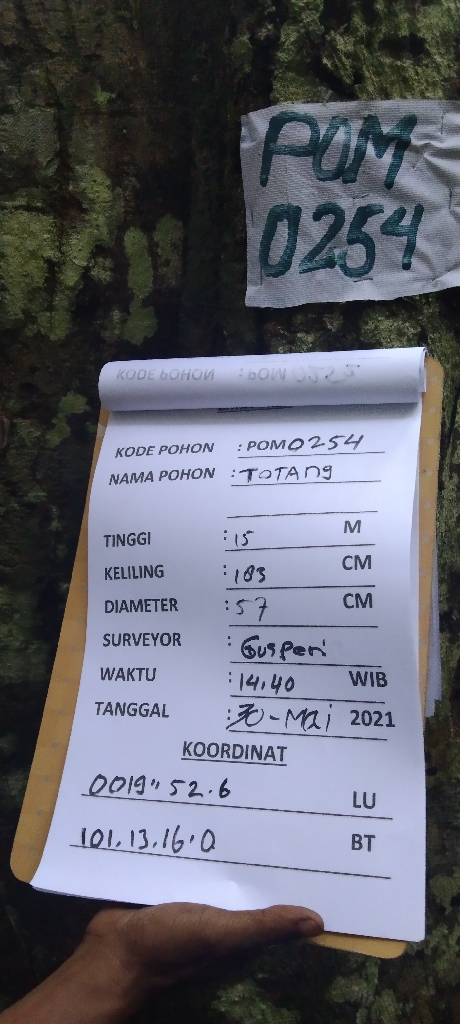 POM
0254
KODE POHON : POM 0252
KODE POHON : POM0254
NAMA POHON : TOTANg
TINGGI : 15 M
KELILING : 183 CM
DIAMETER : 57 CM
SURVEYOR : Gusperi
WAKTU : 14.40 WIB
TANGGAL : 30-MAi 2021
KOORDINAT
0019" 52.6 LU
101.13.16.0 BT